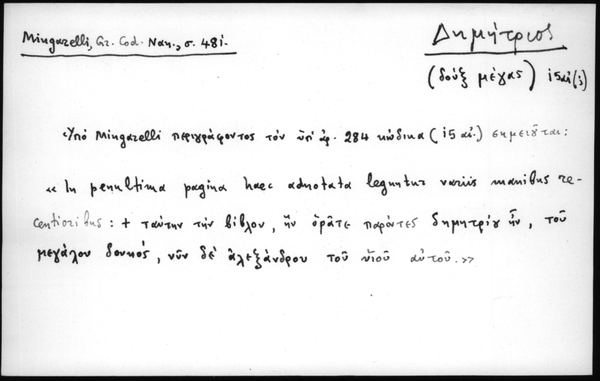 Mingarelli, Gr. Cod. Nan., σ. 481.
Δημήτριος
(δούξ μέγας) 15αἰ(;)
Ὑπό Mingarelli περιγράφοντος τόν ὑπ' ἀρ. 284 κώδικα (15 αἰ.) σημειοῦται:
«In penultima pagina haec adnotata leguntur variis manibus re-
centioribus: + ταύτην τήν βίβλον, ἥν ὁρᾶτε παρόντες δημητρίου ἦν, τοῦ
μεγάλου δουκός, νῦν δέ ἀλεξάνδρου τοῦ υἱοῦ αὐτοῦ.»